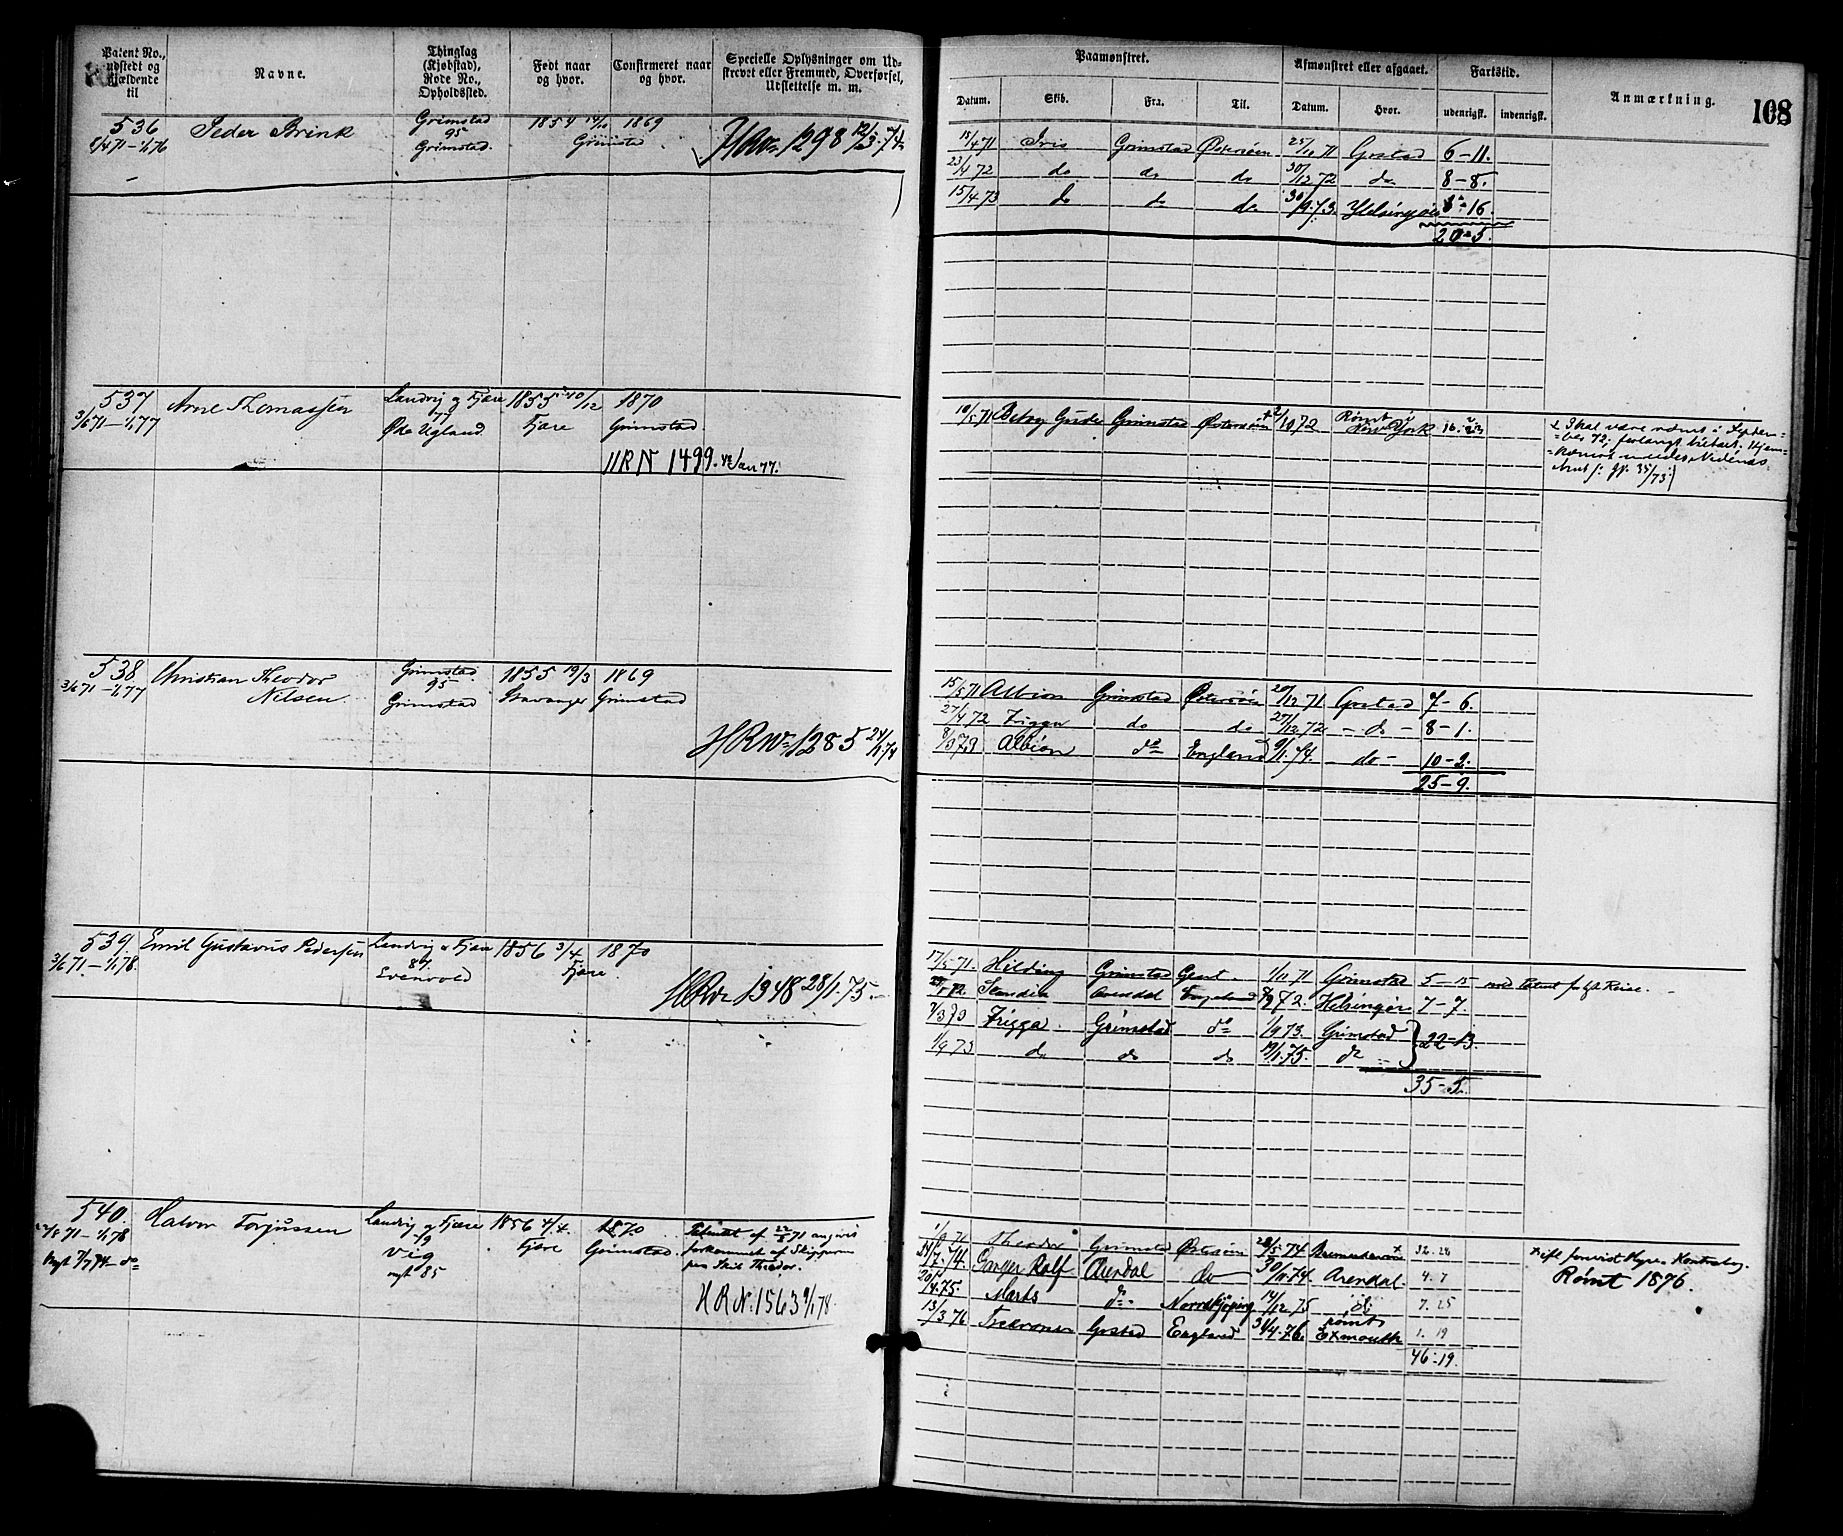 Patent No.,
udstedt og
gjældende
til
Navne.
Thinglag
(Kjøbstad),
Rode No.,
Opholdssted.
Født naar
og hvor.
Confirmeret naar
og hvor.
Specielle Oplysninger om Ud-
skrevet eller Fremmed, Overførsel,
Udslettelse m. m.
536
1/71–1/1 76
Peder Brink
Grimstad
95
Grimstad.
1854 14/10 1869
Grimstad
HR No 1298 12/3.74
537
3/6 71–1/1 77
Arne Thomassen
Landvig og Fjære
77
Øde Ugland.
1855 10/12 1870
Fjære
Grimstad.
HR N 1499. Jan 77.
538
3/6 71–1/1 77
Christian Theodor
Nilsen.
Grimstad
95
Grimstad
1855 19/3 1869
Stavanger Grimstad
HR No 1285 24/1 74
539.
3/6 71–1/1 78.
Emil Gustavus Pedersen
Landvig og Fjære
87.
Evenvold
1856 3/4 1870
Fjære.
HR No 1348 28/1.75.
540.
22/8 71–1/1 78
Nyt 7/7 74 do
Halvor Torjussen
Landvig og Fjære
79
Vig
nyt 85
1856 4/4. 1870.
Fjære Grimstad.
Patentet af 22/8 71 angivet
forkommet af Skipperen
paa Skib Theodor.
H R N. 1563 9/1 78.
Paamønstret.
Afmønstret eller afgaaet.
Fartstid.
Anmærkning.
108
Datum. Skib. Fra. Til. Datum. Hvor. udenrigsk. indenrigsk.
15/4 71 Iris Grimstad Østersøen 25/10 71 Grstad 6–11.
23/4 72 do do do 30/12 72 do 8–8.
15/4 73 do do do 30/9.73. Helsingør 5–16.
20–5.
10/5 71 Betsy Gude Grimstad Østersøen 2/10 72 Rømt New York 16.
Skal være rømt i Septem-
ber 72,
35/73.
15/5 71 Albion Grimstad Østersøen 20/12 71 Grstad 7–6.
27/4 72 Frigga do do 27/12 72 –do– 8–1.
8/3 73 Albion do England 9/1.74. –do– 10–2.
25–9.
17/5 71. Hilding Grimstad Gent 1/11 71 Grimstad 5–15 med Patent
72. Skandia Arendal England 8/9 72. Helsingør 7–7.
3 73 Frigga. Grimstad do 1/9 73. Grimstad 22–13.
1/9 73 do do do 19/1.75. do
35–5.
1/9 71 Theodor Grimstad Østersøen 28/5 74 Bremerhaven 32.28
24/7.74. Ganger Rolf Arendal do 30/11.74. Arendal. 4.7
20/4.75. Marts do Norrkjøping 14/12 75 do 7.25
13/3 76 Grstad England 31/4.76. rømt Exmouth 1.19
46.19.
× ifl. forevist Hyre Kontrabog.
Rømt 1876.